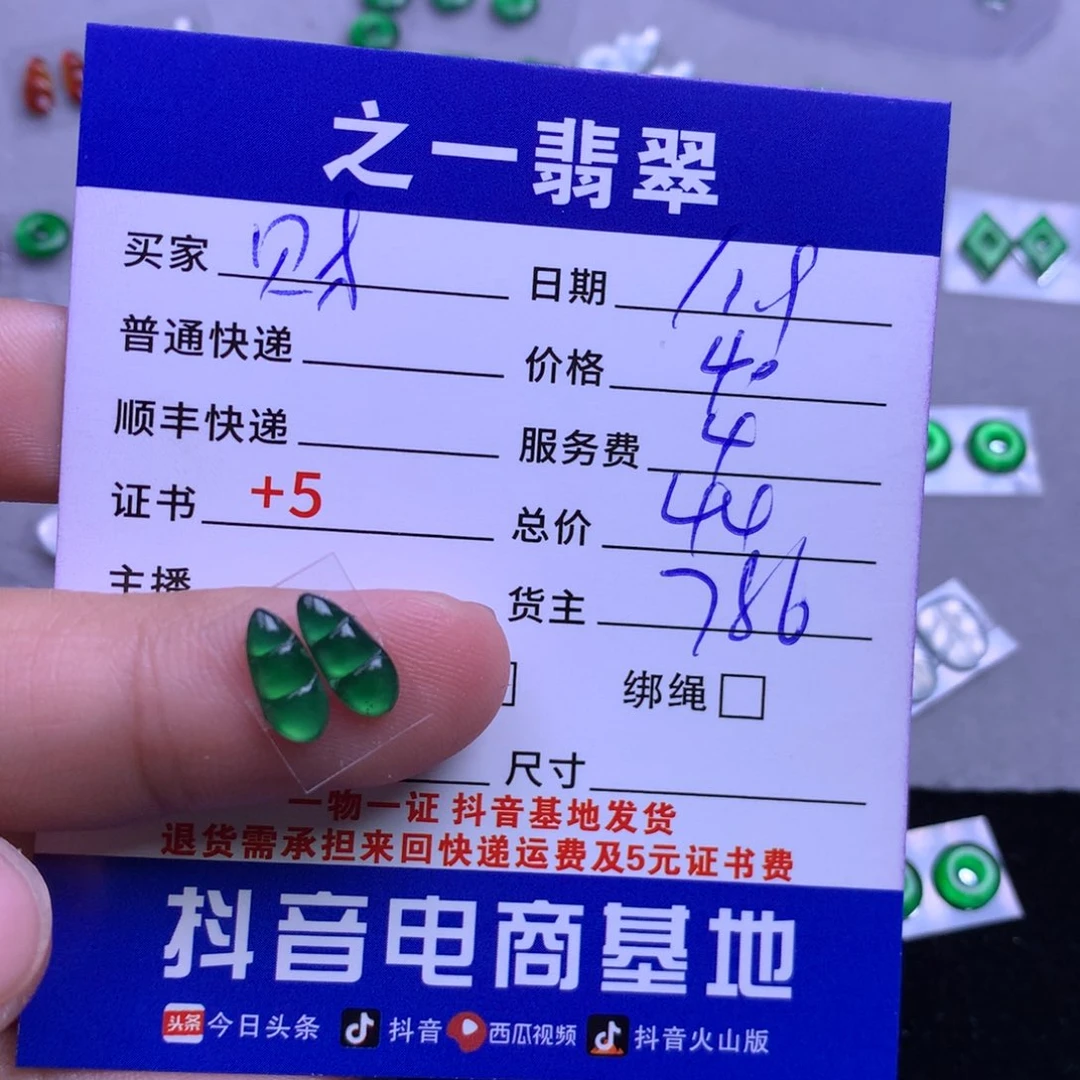 之一翡翠
买家 日期 11.8
普通快递 价格 40
顺丰快递 服务费 4
证书 +5 总价 44
主播 货主 786
绑绳
尺寸
一物一证 抖音基地发货
退货需承担来回快递运费及5元证书费
抖音电商基地
头条 今日头条 抖音 西瓜视频 抖音火山版